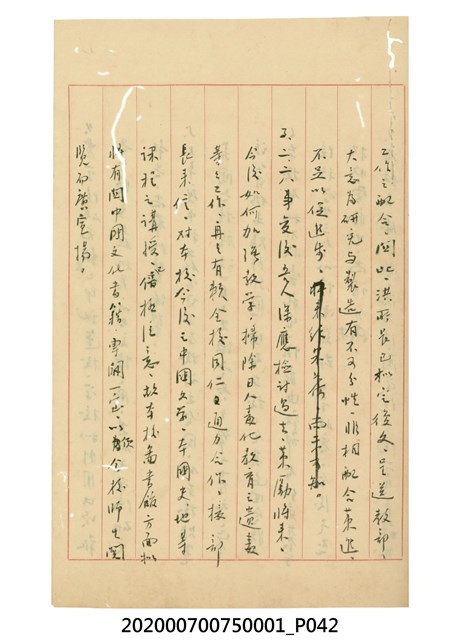 工作之配合，關此，洪所長已擬定後文，呈送教部，
大意為研究與製造有不可分性，非相配合策進，
不足以促進步，
五、二二六事變後吾人深應檢討過去，策勵將來，
今後如何加強教學，掃除日人奴化教育之遺毒
等之工作，再再有賴全校同仁通力合作，接部
長來信，對本校今後之中國文學、本國史地等
課程之講授，備極注意，故本校圖書館方面擬
將有關中國文化書籍，專闢一室，以供全校師生閱
覽而廣宣揚。
202000700750001_P042